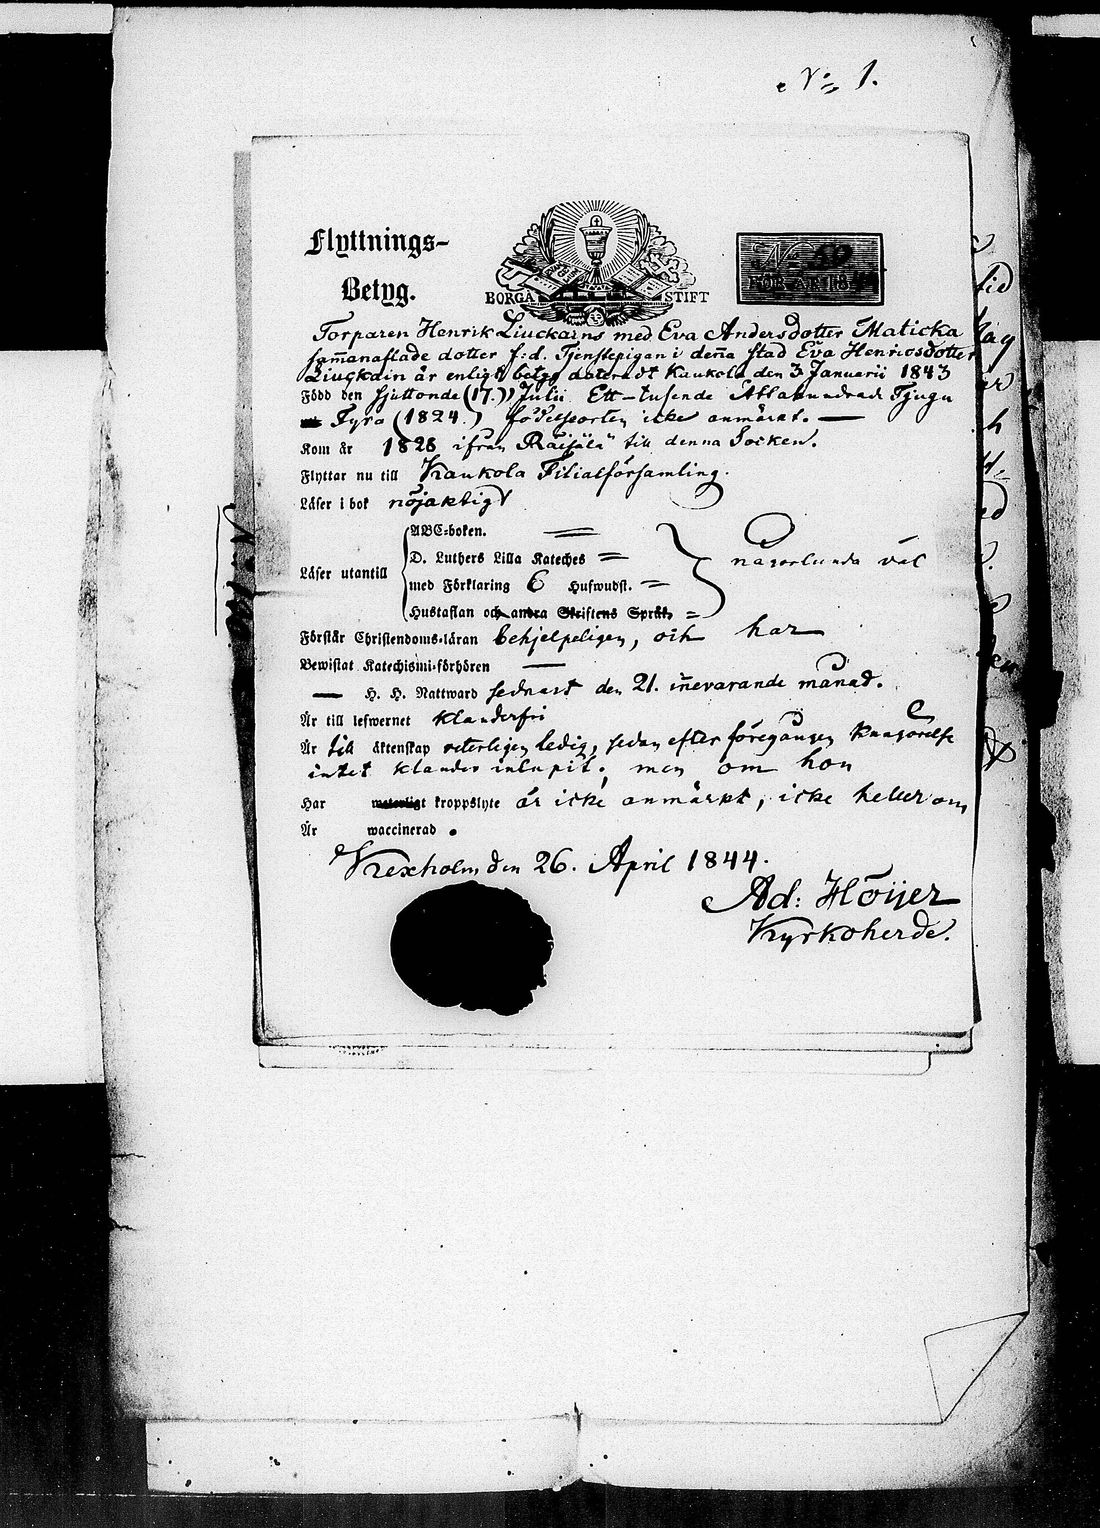 No 1.
Flyttnings-
Betyg.
BORGÅ STIFT
No 50
FÖR ÅR 184
Torparen Henrik Liuckains med Eva Andersdotter Maticka
sammanaflade dotter f:d. Tjenstepigan i denna stad Eva Henricsdotter
Liuckain är enligt betyg dateradt Kaukola den 3 Januarii 1843
Född den sjuttonde (17.) Julii Ett-tusende Åttahundrade Tjugu
Fyra (1824.) födelseorten icke anmärkt.
Kom år 1828 ifrån Räisälä till denna Socken.
Flyttar nu till Kaukola Filialförsamling.
Läser i bok nöjaktigt
ABC-boken.
D. Luthers Lilla Kateches
Läser utantill med Förklaring 6 Hufwudst. någorlunda väl
Hustaflan och andra Skriftens Språk,
Förstår Christendoms-läran behjelpeligen, och har
Bewistat Katechismi-förhören
H. H. Nattward sednast den 21. innevarande månad.
Är till lefwernet klanderfri
Är till äktenskap veterligen ledig, sedan efter föregången kungörelse
intet klander inlupit; men om hon
Har kroppslyte är icke anmärkt, icke heller om
Är waccinerad.
Kexholm den 26. April 1844.
Ad: Höijer
Kyrkoherde.